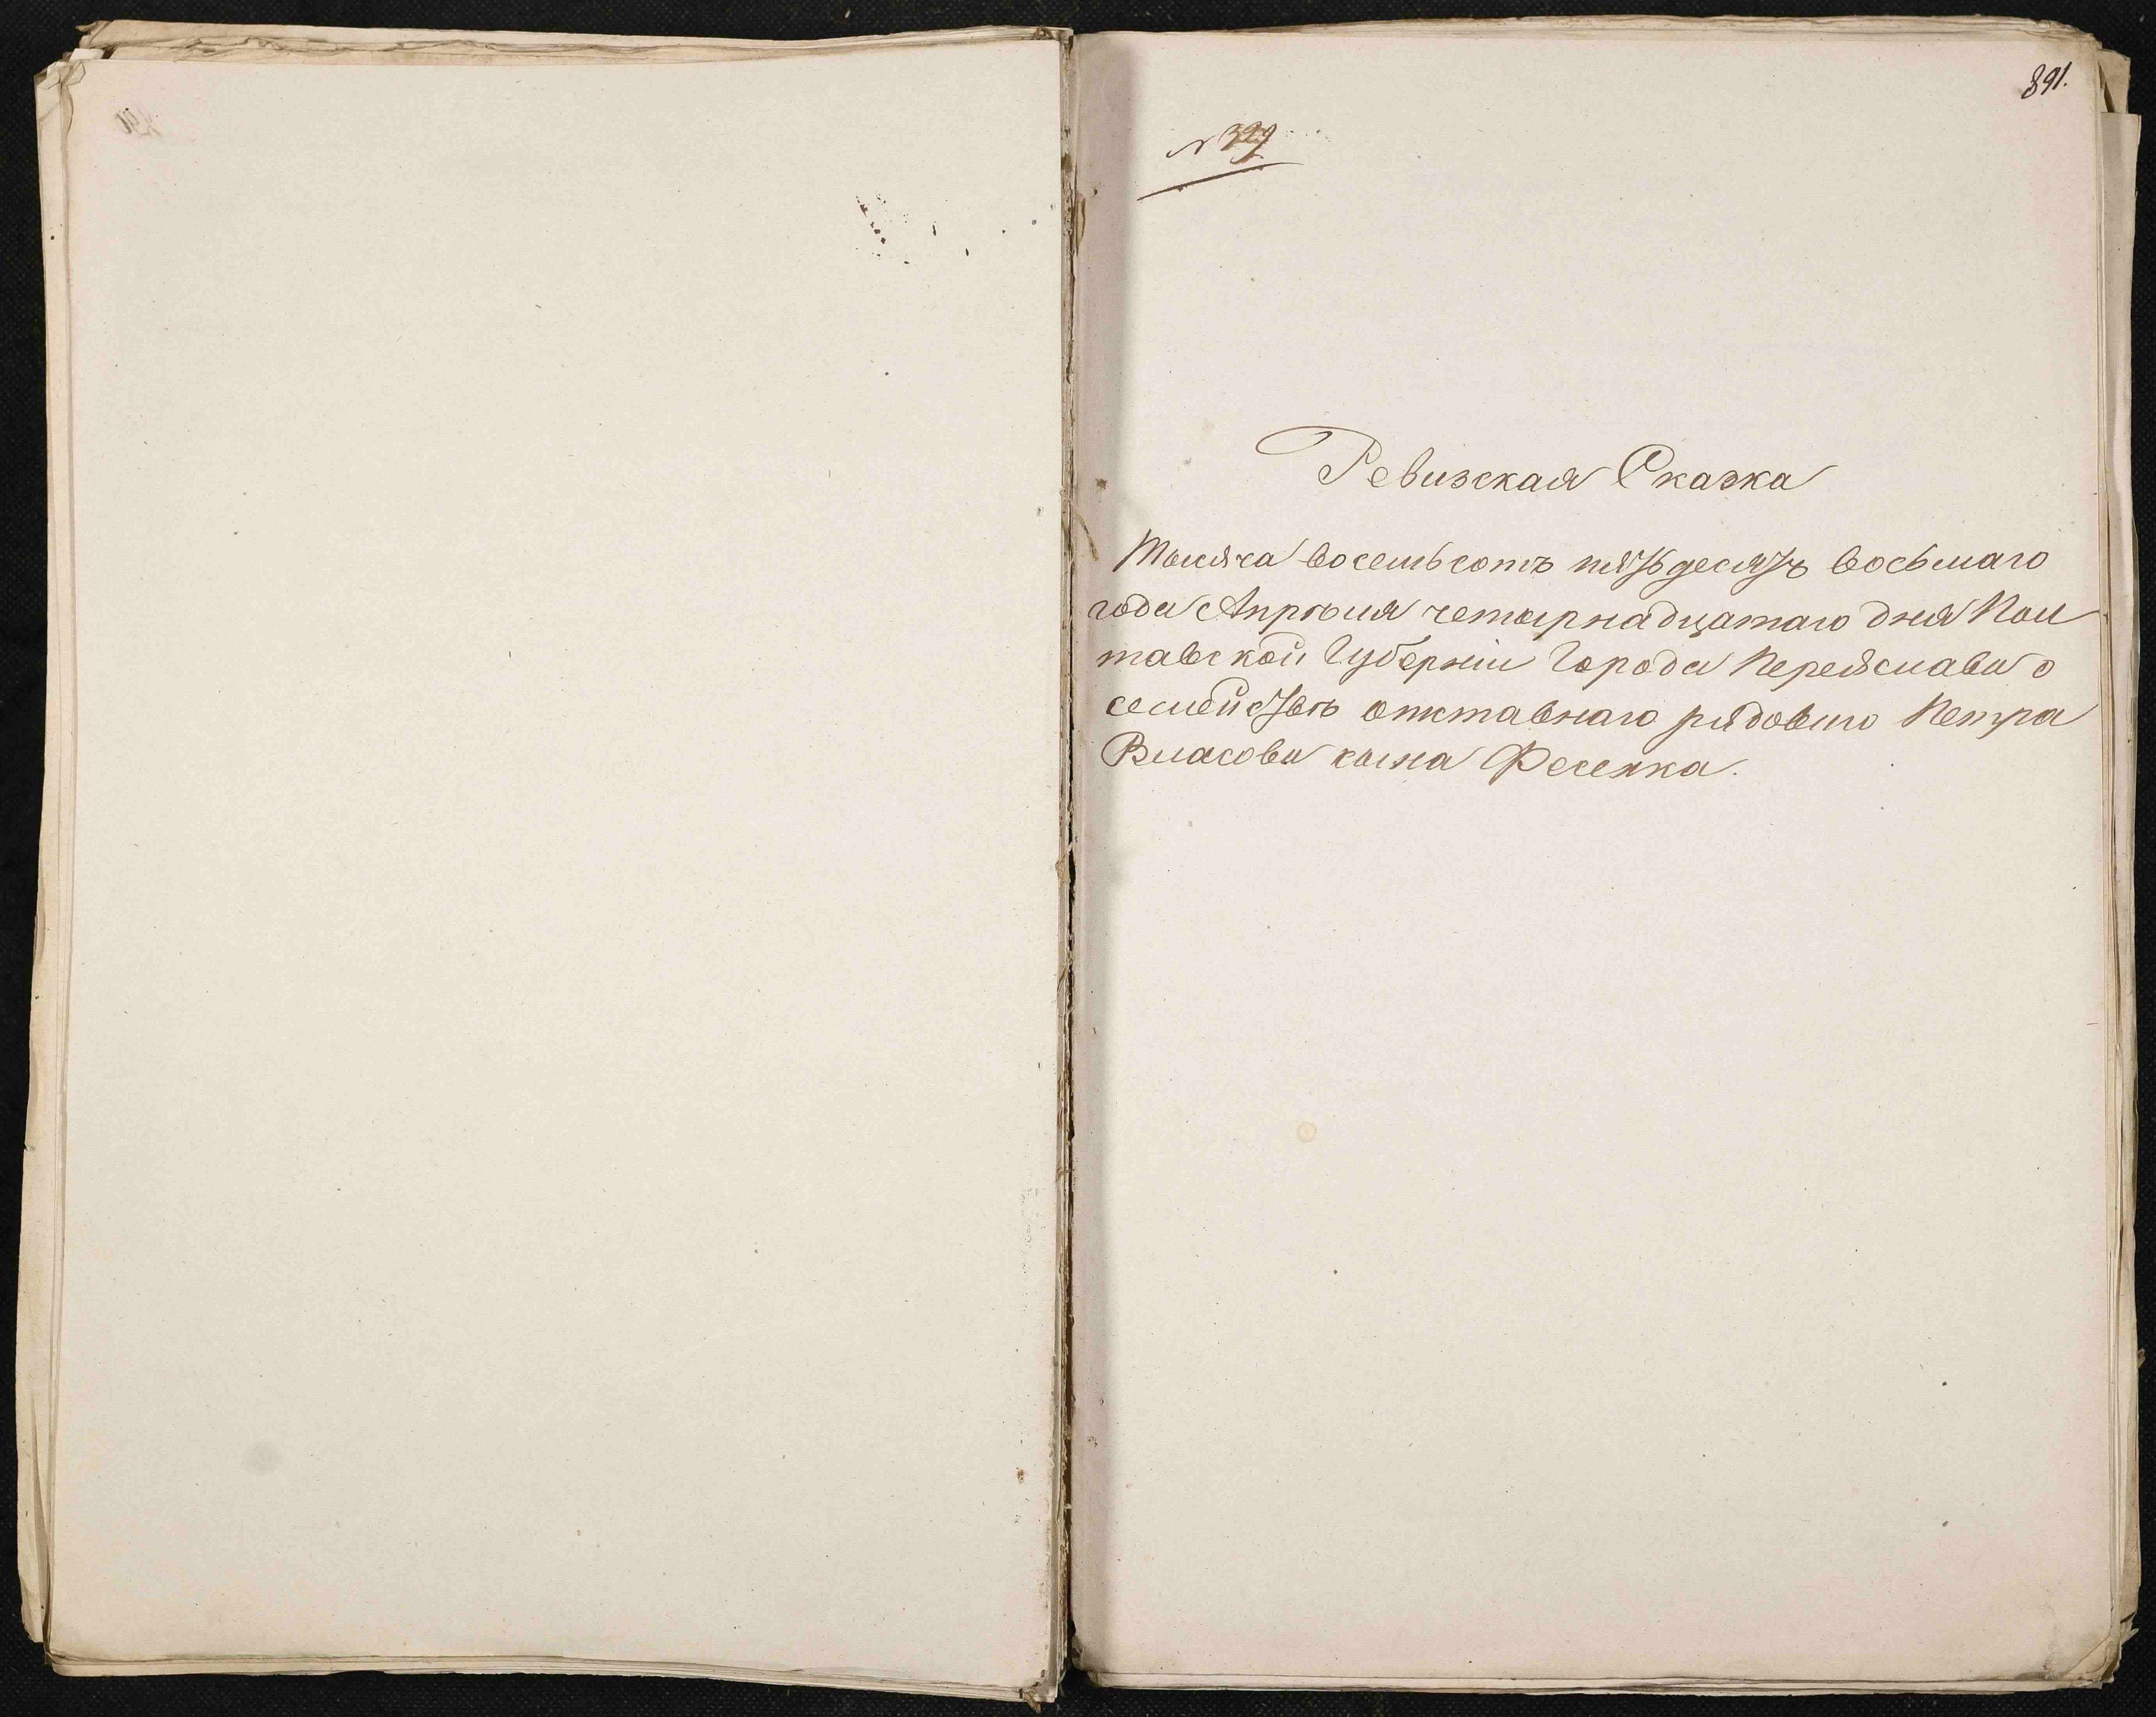 891.
№ 329
Ревизская Сказка
Тысяча восемьсотъ пятьдесятъ восьмаго
года Апрѣля четырнадцатаго дня Пол
тавской Губерніи Города Переяслава о
семействѣ отставнаго рядоваго Петра
Власова сына Фесенка.